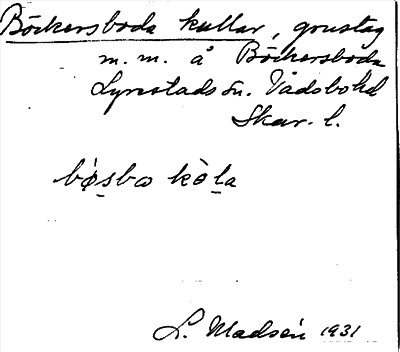 Böckersboda kullar, grustag
m.m. å Böckersboda
Lyrestads sn. Vadsbo hd
Skar. l.
bǿsba kòla
L. Madsén 1931